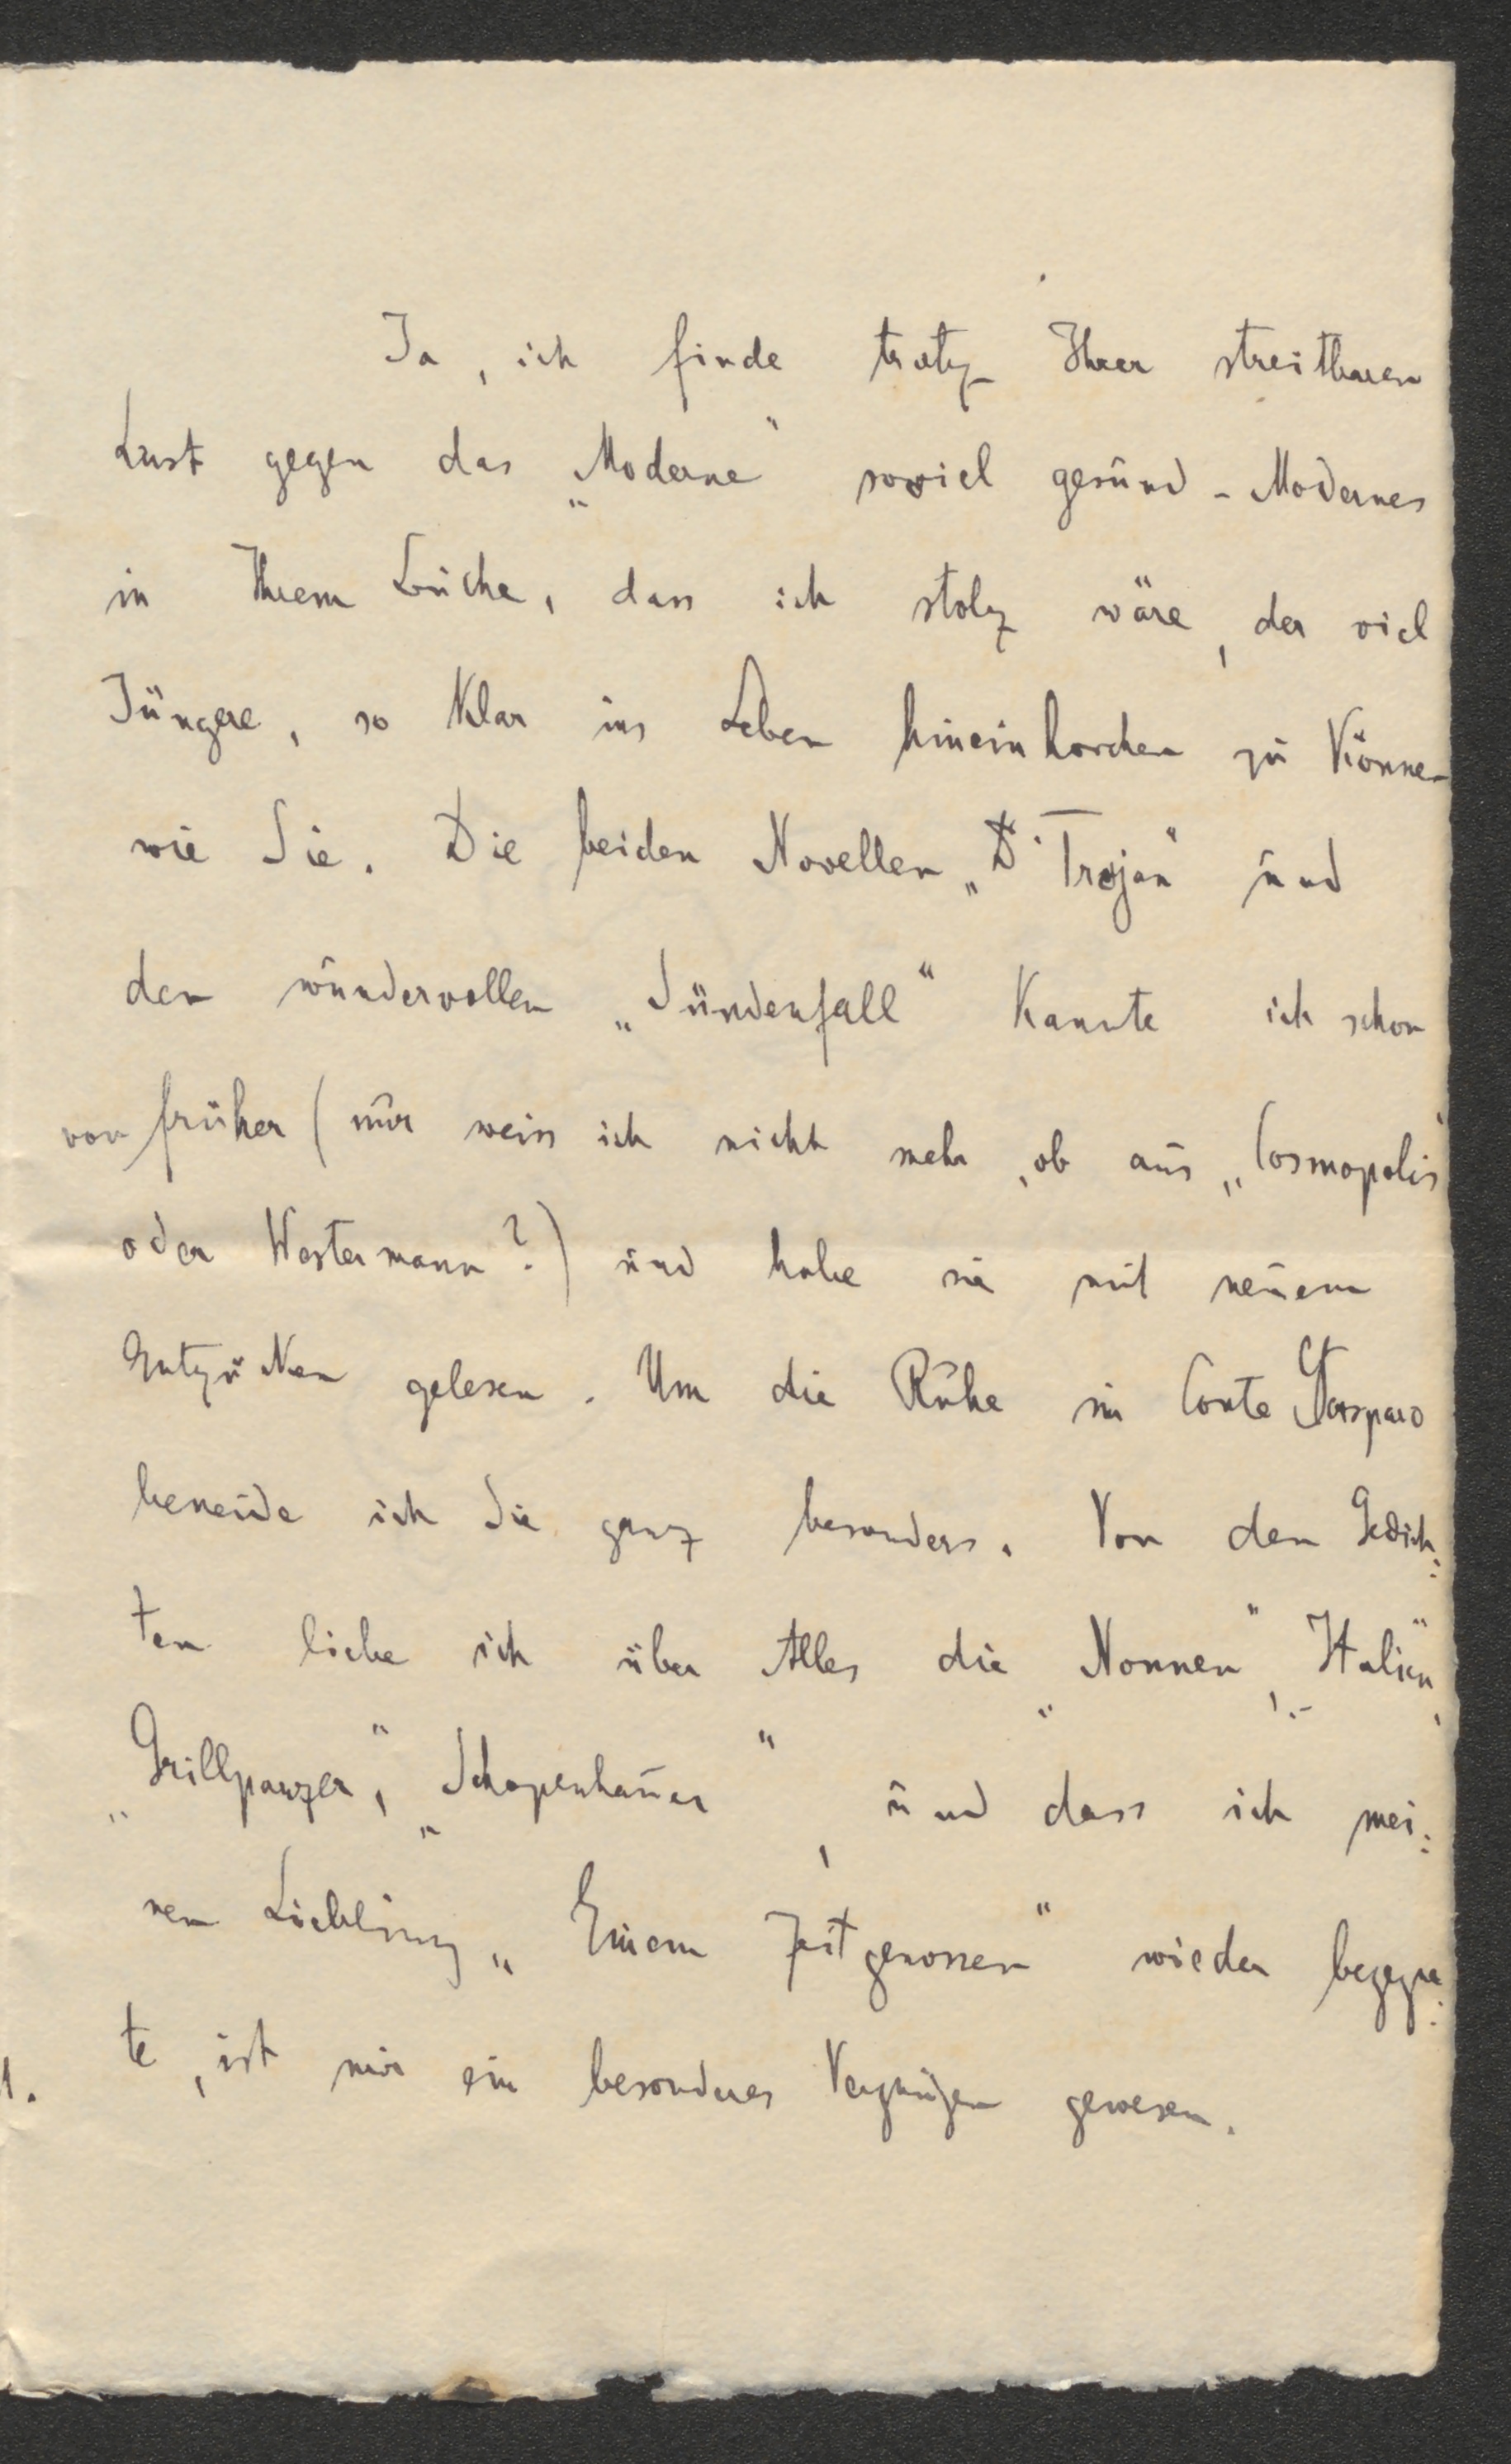 Ja, ich finde trotz Ihrer streitbaren
Lust gegen das „Moderne" soviel gesund-Modernes
in Ihrem Buche, dass ich stolz wäre, der viel
Jüngere, so klar ins Leben hineinhorchen zu können
wie Sie. Die beiden Novellen „Dr Trojan" und
den wundervollen „Sündenfall" kannte ich schon
von früher (nur weiss ich nicht mehr, ob aus „Cosmopolis"
oder Westermann?) und habe sie mit neuem
Entzücken gelesen. Um die Ruhe im Conte Gasparo
beneide ich Sie ganz besonders. Von den Gedich:
ten liebe ich über Alles die „Nonnen", „Italien",
„Grillparzer", „Schopenhauer", und dass ich mei:
nem Liebling „Einem Zeitgenossen" wieder begegne:
te, ist mir ein besonderes Vergnügen gewesen.